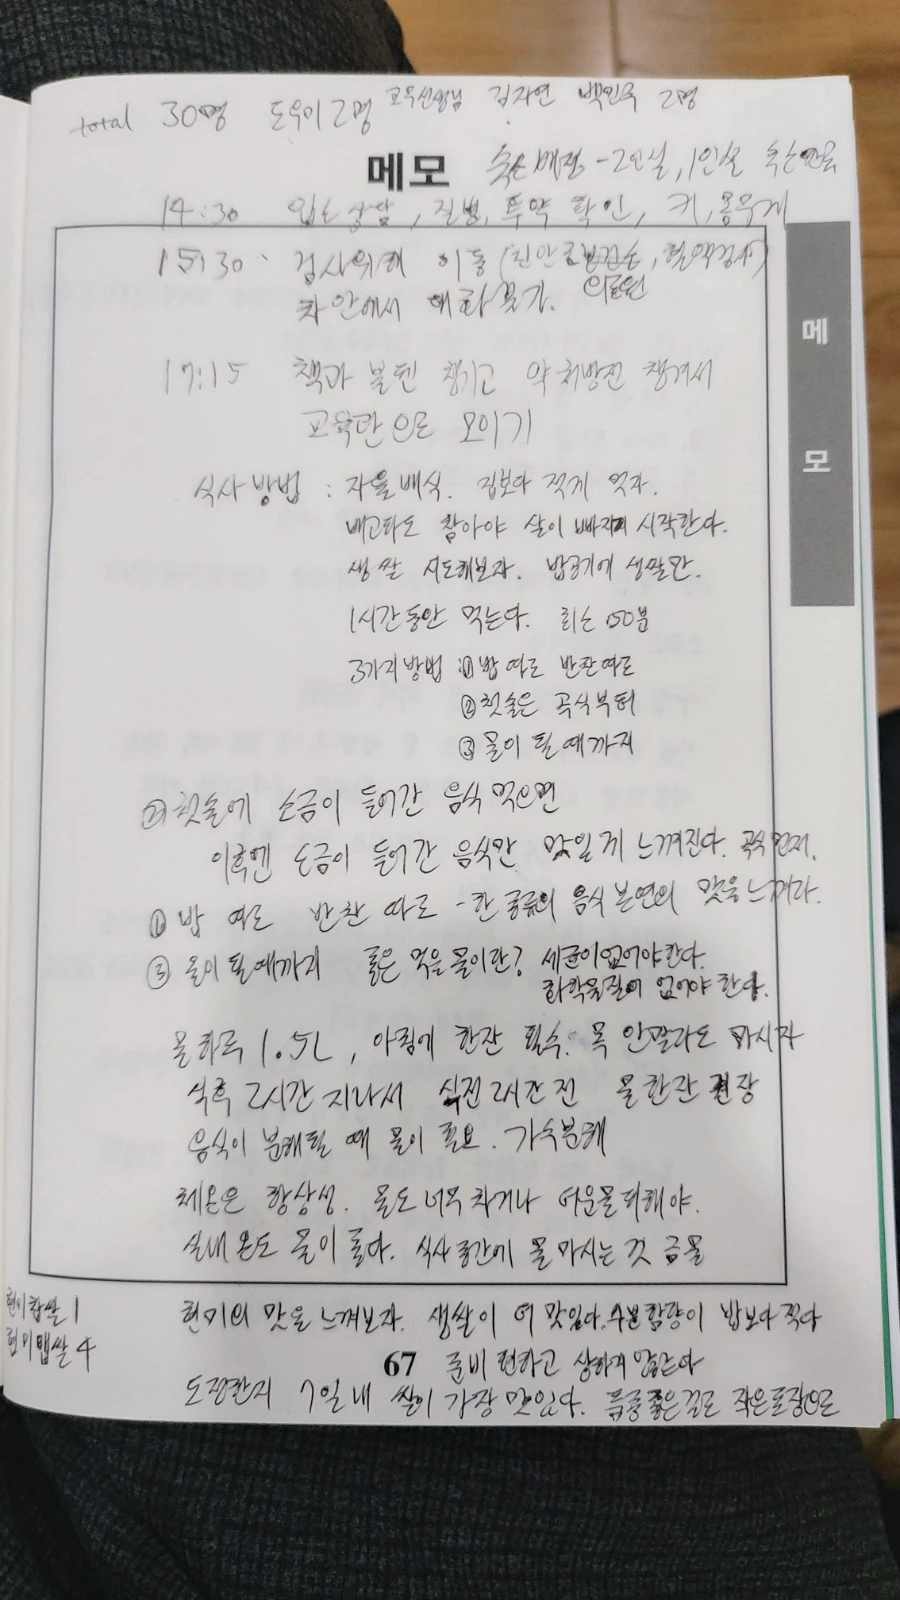 total 30명 도우미 2명 교육선생님 김자연 백민국 2명
메모 숙소배정 - 2인실, 1인실
14:30 입소상담, 질병, 투약 확인, 키, 몸무게
15:30 검사위해 이동 (진안군 의료원, 혈액검사)
차안에서 대화 꽃가.
메
모
17:15 책과 볼펜 챙기고 약처방전 챙겨서
교육관으로 모이기
식사방법 : 자율배식. 집보다 적게 먹자.
배고파도 참아야 살이 빠지기 시작한다.
생쌀 시도해보자. 밥공기에 생쌀만.
1시간동안 먹는다.
3가지방법 : ① 밥 따로 반찬따로
② 첫술은 곡식부터
③ 물이 될 때까지
② 첫술에 소금이 들어간 음식 먹으면
이후엔 소금이 들어간 음식만 맛있게 느껴진다. 곡식먼저.
① 밥 따로 반찬 따로 - 한 종류의 음식 본연의 맛을 느껴라.
③ 물이 될때까지 좋은 먹을 물이란? 세균이 없어야한다.
화학물질이 없어야 한다.
물 하루 1.5L, 아침에 한잔 필수. 목 안말라도 마시자
식후 2시간 지나서 식전 2시간 전 물한잔 권장
음식이 분해될 때 물이 필요. 가수분해
체온은 항상성. 물도 너무 차거나 더운물 피해야.
실내 온도 물이 좋다. 식사 중간에 물 마시는 것 금물
현미찹쌀 1
현미맵쌀 4
현미의 맛을 느껴보자. 생쌀이 더 맛있다. 수분함량이 밥보다 적다
67 준비 편하고 상하지 않는다
도정한지 7일 내 쌀이 가장 맛있다. 품종좋은걸로 작은포장으로